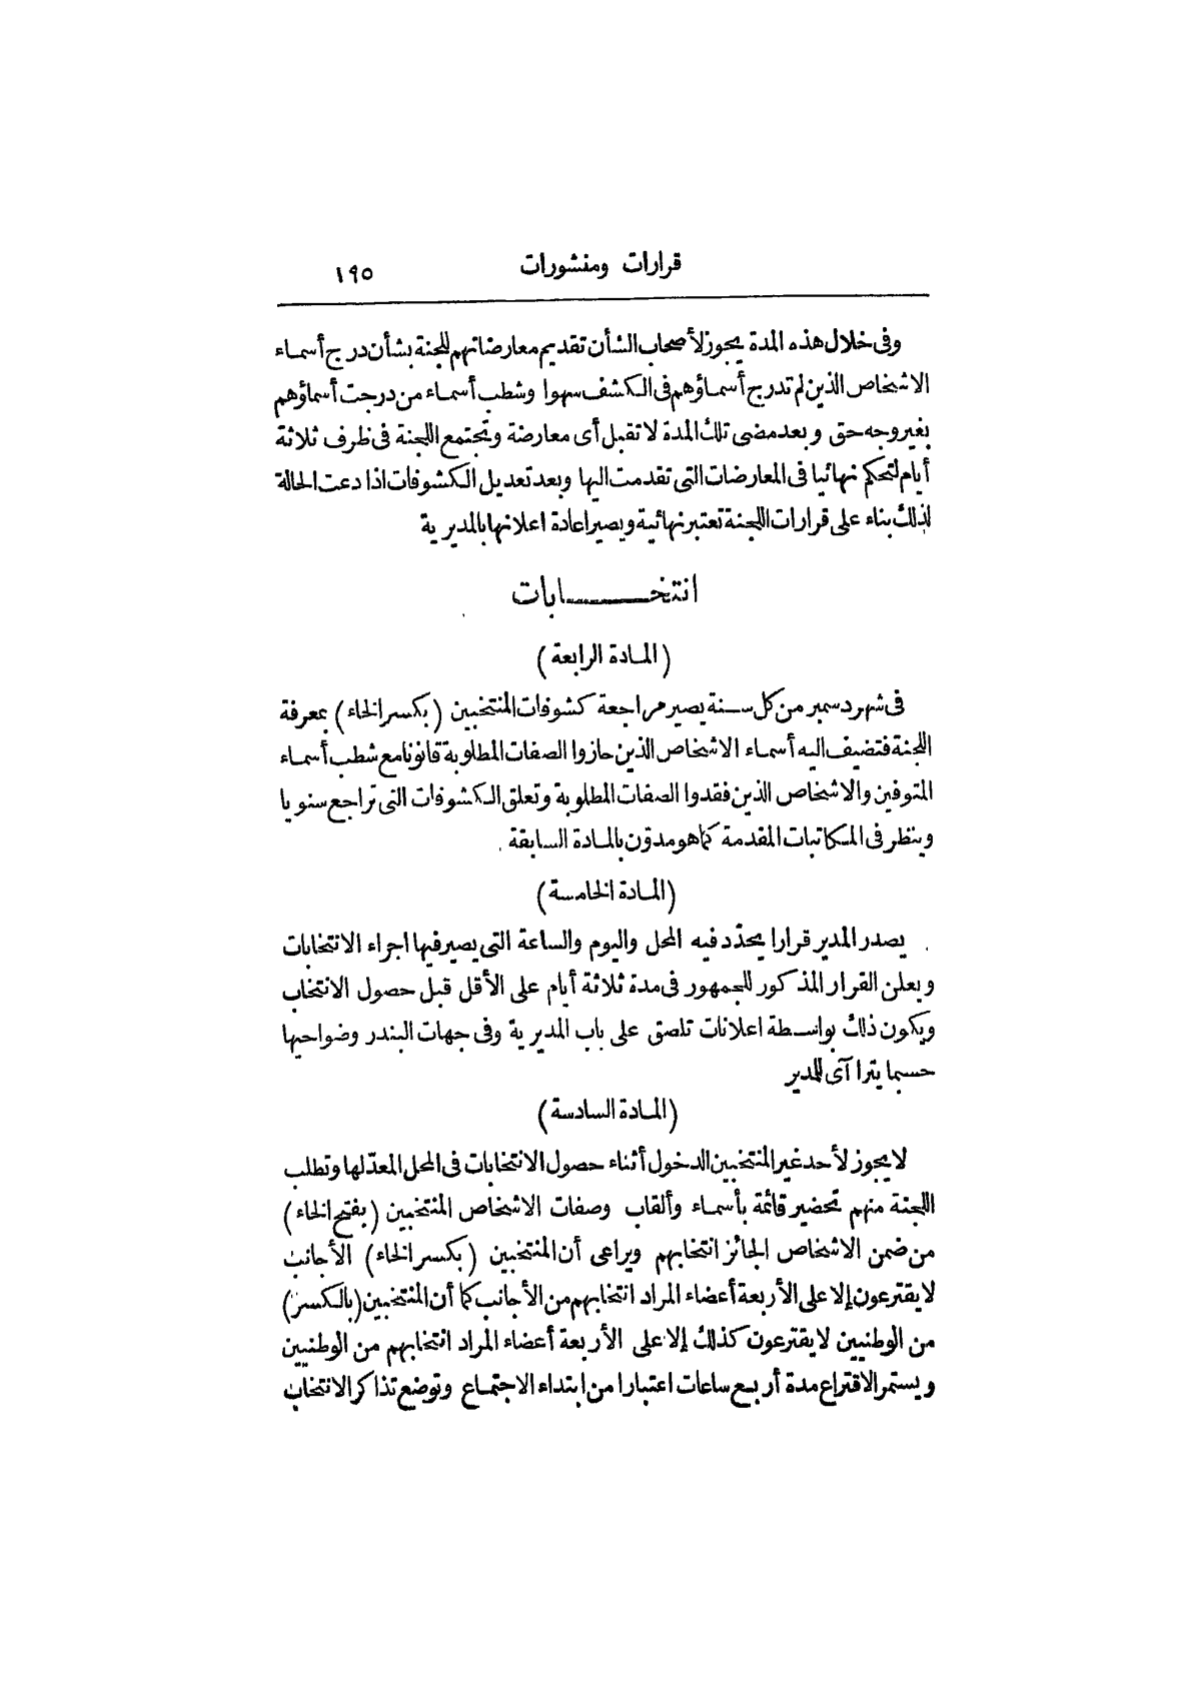 قرارات ومنشورات ١٩٥
وفى خلال هذه المدة يجوز لأصحاب الشأن تقديم معارضاتهم للجنة بشأن درج أسماء
الاشخاص الذين لم تدرج أسماؤهم فى الكشف سهوا وشطب أسماء من درجت أسماؤهم
بغير وجه حق وبعد مضى تلك المدة لا تقبل أى معارضة وتجتمع اللجنة فى ظرف ثلاثة
أيام لتحكم نهائيا فى المعارضات التى تقدمت اليها وبعد تعديل الكشوفات اذا دعت الحالة
لذلك بناء على قرارات اللجنة تعتبر نهائية ويصير اعادة اعلانها بالمديرية
انتخـــــابات
(المادة الرابعة)
فى شهر دسمبر من كل سنة يصير مراجعة كشوفات المنتخبين (بكسر الخاء) بمعرفة
اللجنة فتضيف اليه أسماء الاشخاص الذين حازوا الصفات المطلوبة قانونا مع شطب أسماء
المتوفين والاشخاص الذين فقدوا الصفات المطلوبة وتعلق الكشوفات التى تراجع سنويا
وينظر فى المكاتبات المقدمة كما هو مدوّن بالمادة السابقة
(المادة الخامسة)
يصدر المدير قرارا يحدّد فيه المحل واليوم والساعة التى يصير فيها اجراء الانتخابات
ويعلن القرار المذكور للجمهور فى مدة ثلاثة أيام على الأقل قبل حصول الانتخاب
ويكون ذلك بواسطة اعلانات تلصق على باب المديرية وفى جهات البندر وضواحيها
حسبما يترا آى للمدير
(المادة السادسة)
لا يجوز لأحد غير المنتخبين الدخول أثناء حصول الانتخابات فى المحل المعدّ لها وتطلب
اللجنة منهم تحضير قائمة بأسماء وألقاب وصفات الاشخاص المنتخبين (بفتح الخاء)
من ضمن الاشخاص الجائز انتخابهم ويراعى أن المنتخبين (بكسر الخاء) الأجانب
لا يقترعون إلا على الأربعة أعضاء المراد انتخابهم من الأجانب كما أن المنتخبين (بالكسر)
من الوطنيين لا يقترعون كذلك إلا على الأربعة أعضاء المراد انتخابهم من الوطنيين
ويستمر الاقتراع مدة أربع ساعات اعتبارا من ابتداء الاجتماع وتوضع تذاكر الانتخاب